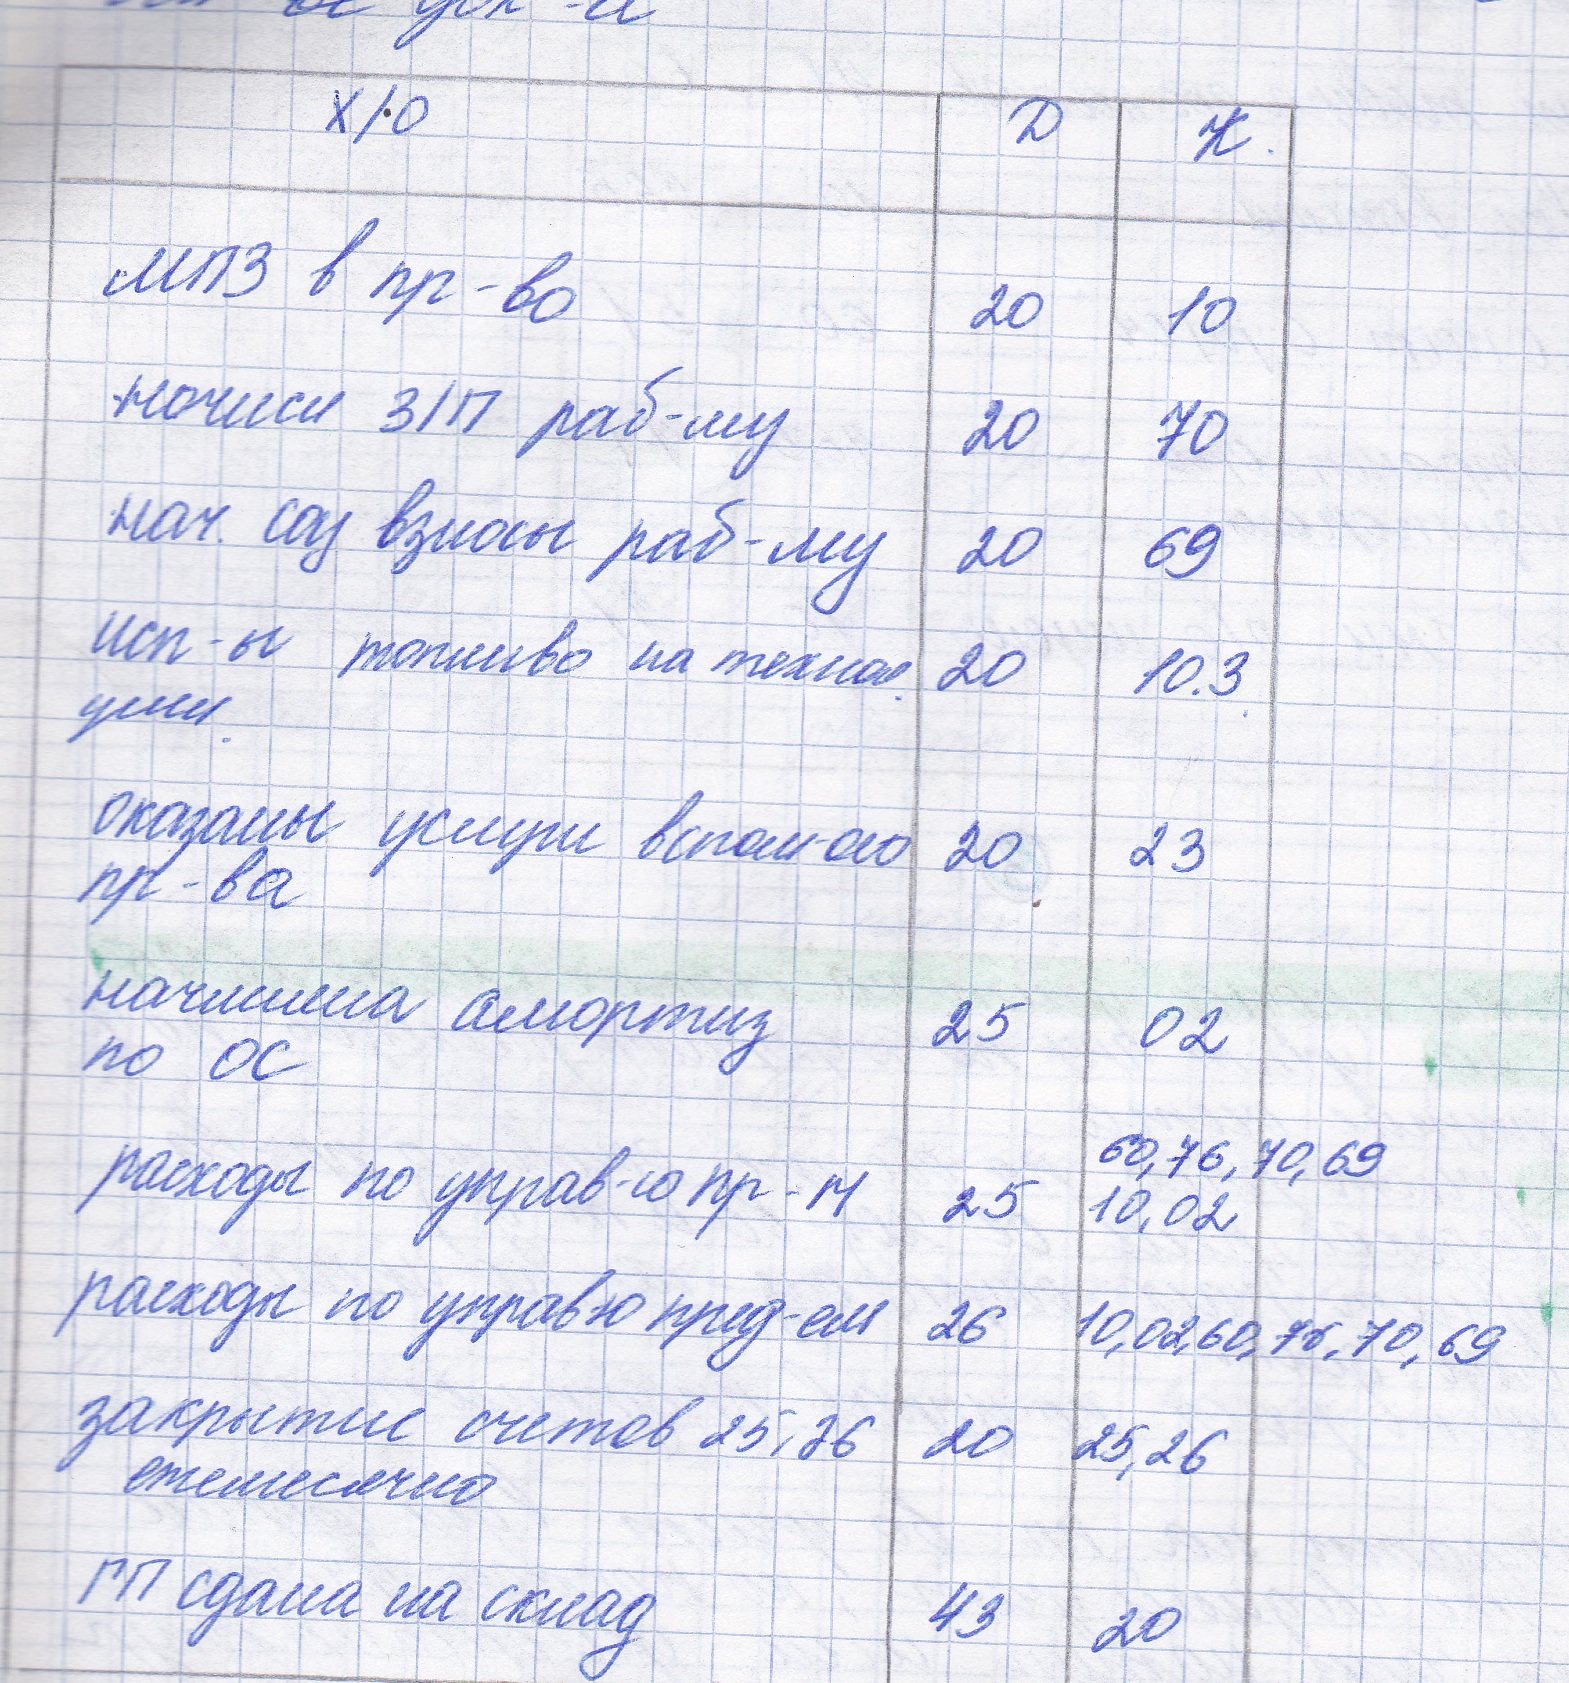 Х/О Д К.
МПЗ в пр-во 20 10
начисл З/П раб-му 20 70
нач. соц взносы раб-му 20 69
исп-ы топливо на технол. 20 10.3
цели.
оказаны услуги вспом-ого 20 23
пр-ва
начислена амортиз 25 02
по ОС
60,76,70,69
расходы по управ-ю пр-м 25 10,02
расходы по управ-ю пред-ем 26 10,02,60,76,70,69
закрытие счетов 25,26 20 25,26
ежемесячно
ГП сдана на склад 43 20